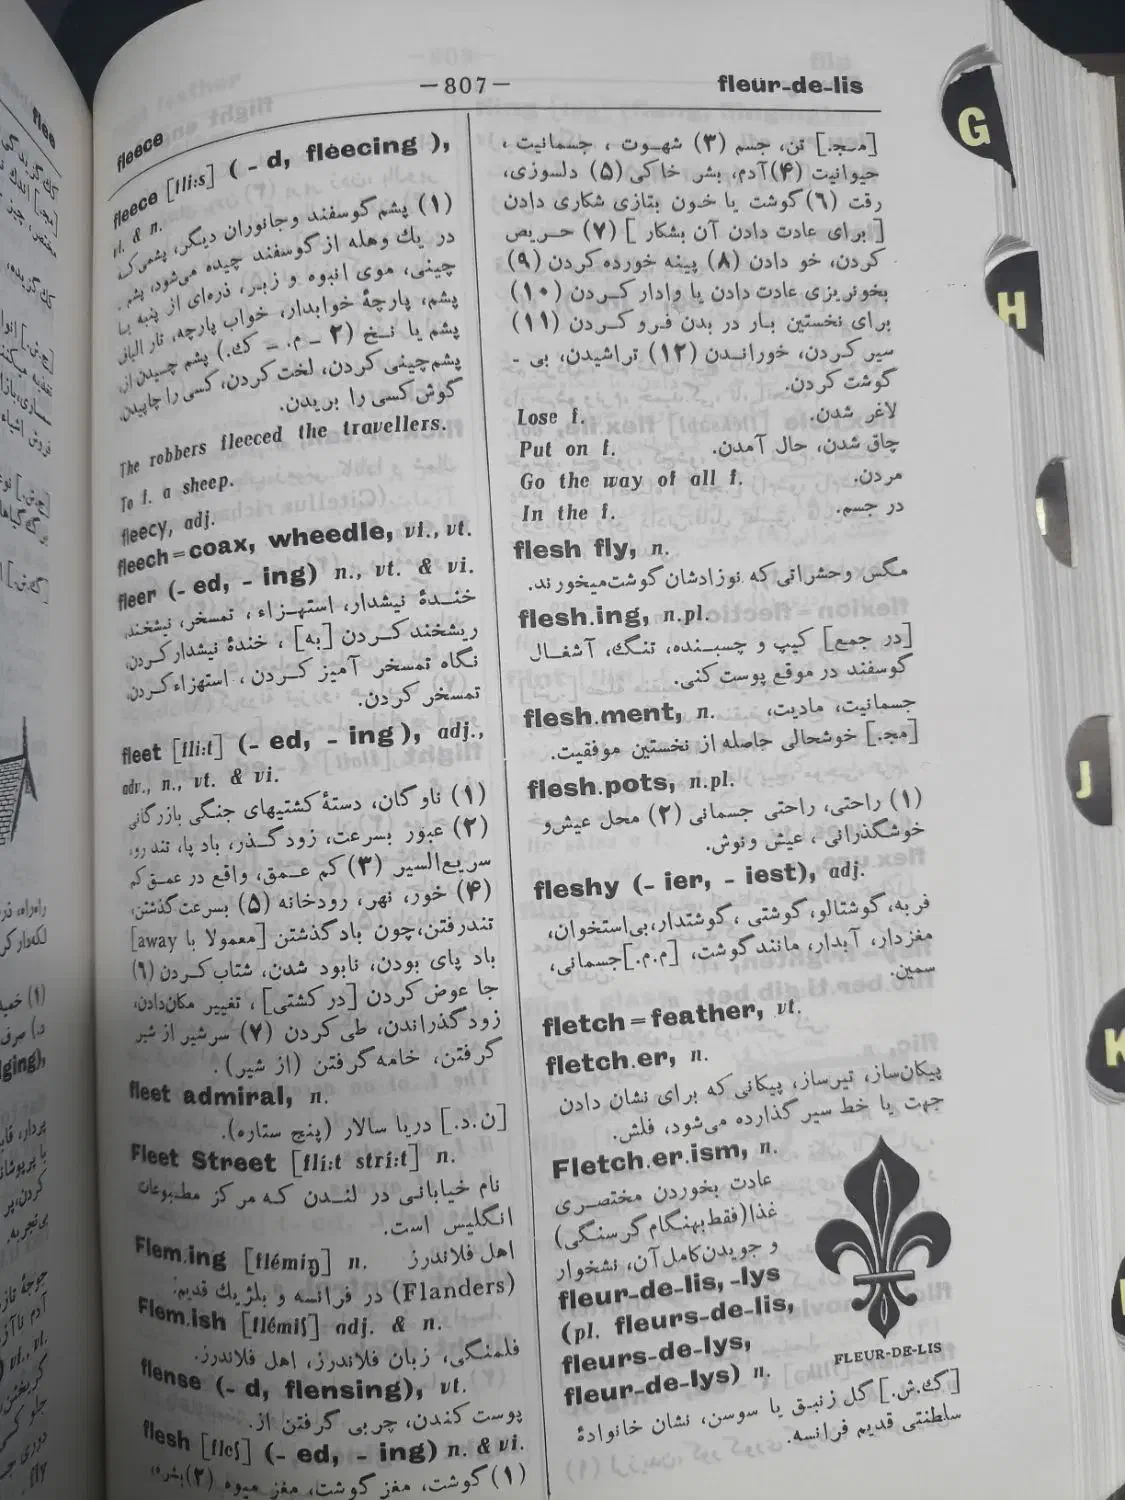 fleece
—807—
fleur-de-lis
fleece [fli:s] (-d, fleecing),
vt. & n.
(۱) پشم گوسفند وجانوران دیگر، پشمی‌که
در یك وهله از گوسفند چیده می‌شود، پشم.
چینی، موی انبوه و زبر، ذره‌ای از پنبه یا
پشم، پارچهٔ خوابدار، خواب پارچه، تار الیافی
پشم یا نخ (۲ ـ م. ـ ك.) پشم چیدن از،
پشم‌چینی کردن، لخت کردن، کسی را چاپیدن،
گوش کسی را بریدن.
The robbers fleeced the travellers.
To f. a sheep.
fleecy, adj.
fleech=coax, wheedle, vi., vt.
fleer (-ed, -ing) n., vt. & vi.
خندهٔ نیشدار، استهزاء، تمسخر، نیشخند،
ریشخند کردن [به]، خندهٔ نیشدار کردن،
نگاه تمسخر آمیز کردن، استهزاء کردن،
تمسخر کردن.
fleet [fli:t] (-ed, -ing), adj.,
adv., n., vt. & vi.
(۱) ناوگان، دستهٔ کشتیهای جنگی بازرگانی
(۲) عبور بسرعت، زود گذر، باد پا، تند رو،
سریع‌السیر (۳) کم عمق، واقع در عمق کم
(۴) خور، نهر، رودخانه (۵) بسرعت گذشتن،
تندرفتن، چون باد گذشتن [معمولا با away]
باد پای بودن، نابود شدن، شتاب کردن (۶)
جا عوض کردن [در کشتی]، تغییر مکان‌دادن،
زود گذراندن، طی کردن (۷) سرشیر از شیر
گرفتن، خامه گرفتن (از شیر).
fleet admiral, n.
[ن.د.] دریا سالار (پنج ستاره).
Fleet Street [fli:t stri:t] n.
نام خیابانی در لندن که مرکز مطبوعات
انگلیس است.
Flem.ing [flémiŋ] n. اهل فلاندرز
(Flanders) در فرانسه و بلژیك قدیم.
Flem.ish [flémiʃ] adj. & n.
فلمنگی، زبان فلاندرز، اهل فلاندرز.
flense (-d, flensing), vt.
پوست کندن، چربی گرفتن از.
flesh [fleʃ] (-ed, -ing) n. & vi.
(۱) گوشت، مغز گوشت، مغز میوه (۲) بشره،
[مج.] تن، جسم (۳) شهوت، جسمانیت،
حیوانیت (۴) آدم، بشر خاکی (۵) دلسوزی،
رقت (۶) گوشت یا خون بتازی شکاری دادن
[برای عادت دادن آن بشکار] (۷) حریص
کردن، خو دادن (۸) پینه خورده کردن (۹)
بخونریزی عادت دادن یا وادار کردن (۱۰)
برای نخستین بار در بدن فرو کردن (۱۱)
سیر کردن، خوراندن (۱۲) تراشیدن، بی ـ
گوشت کردن.
Lose f. لاغر شدن.
Put on f. چاق شدن، حال آمدن.
Go the way of all f. مردن.
In the f. در جسم.
flesh fly, n.
مگس وحشراتی که نوزادشان گوشت میخورند.
flesh.ing, n.pl.
[در جمع] کیپ و چسبنده، تنگ، آشغال
گوسفند در موقع پوست کنی.
flesh.ment, n. جسمانیت، مادیت،
[مج.] خوشحالی حاصله از نخستین موفقیت.
flesh.pots, n.pl.
(۱) راحتی، راحتی جسمانی (۲) محل عیش‌و
خوشگذرانی، عیش ونوش.
fleshy (-ier, -iest), adj.
فربه، گوشتالو، گوشتی، گوشتدار، بی‌استخوان،
مغزدار، آبدار، مانند گوشت، [م.م.] جسمانی،
سمین.
fletch=feather, vt.
fletch.er, n.
پیکان‌ساز، تیرساز، پیکانی که برای نشان دادن
جهت یا خط سیر گذارده می‌شود، فلش.
Fletch.er.ism, n.
عادت بخوردن مختصری
غذا (فقط بهنگام گرسنگی)
و جویدن کامل آن، نشخوار
fleur-de-lis, -lys
(pl. fleurs-de-lis,
fleurs-de-lys,
fleur-de-lys) n.
[گ.ش.] گل زنبق یا سوسن، نشان خانوادهٔ
سلطنتی قدیم فرانسه.
FLEUR-DE-LIS
G
H
I
J
K